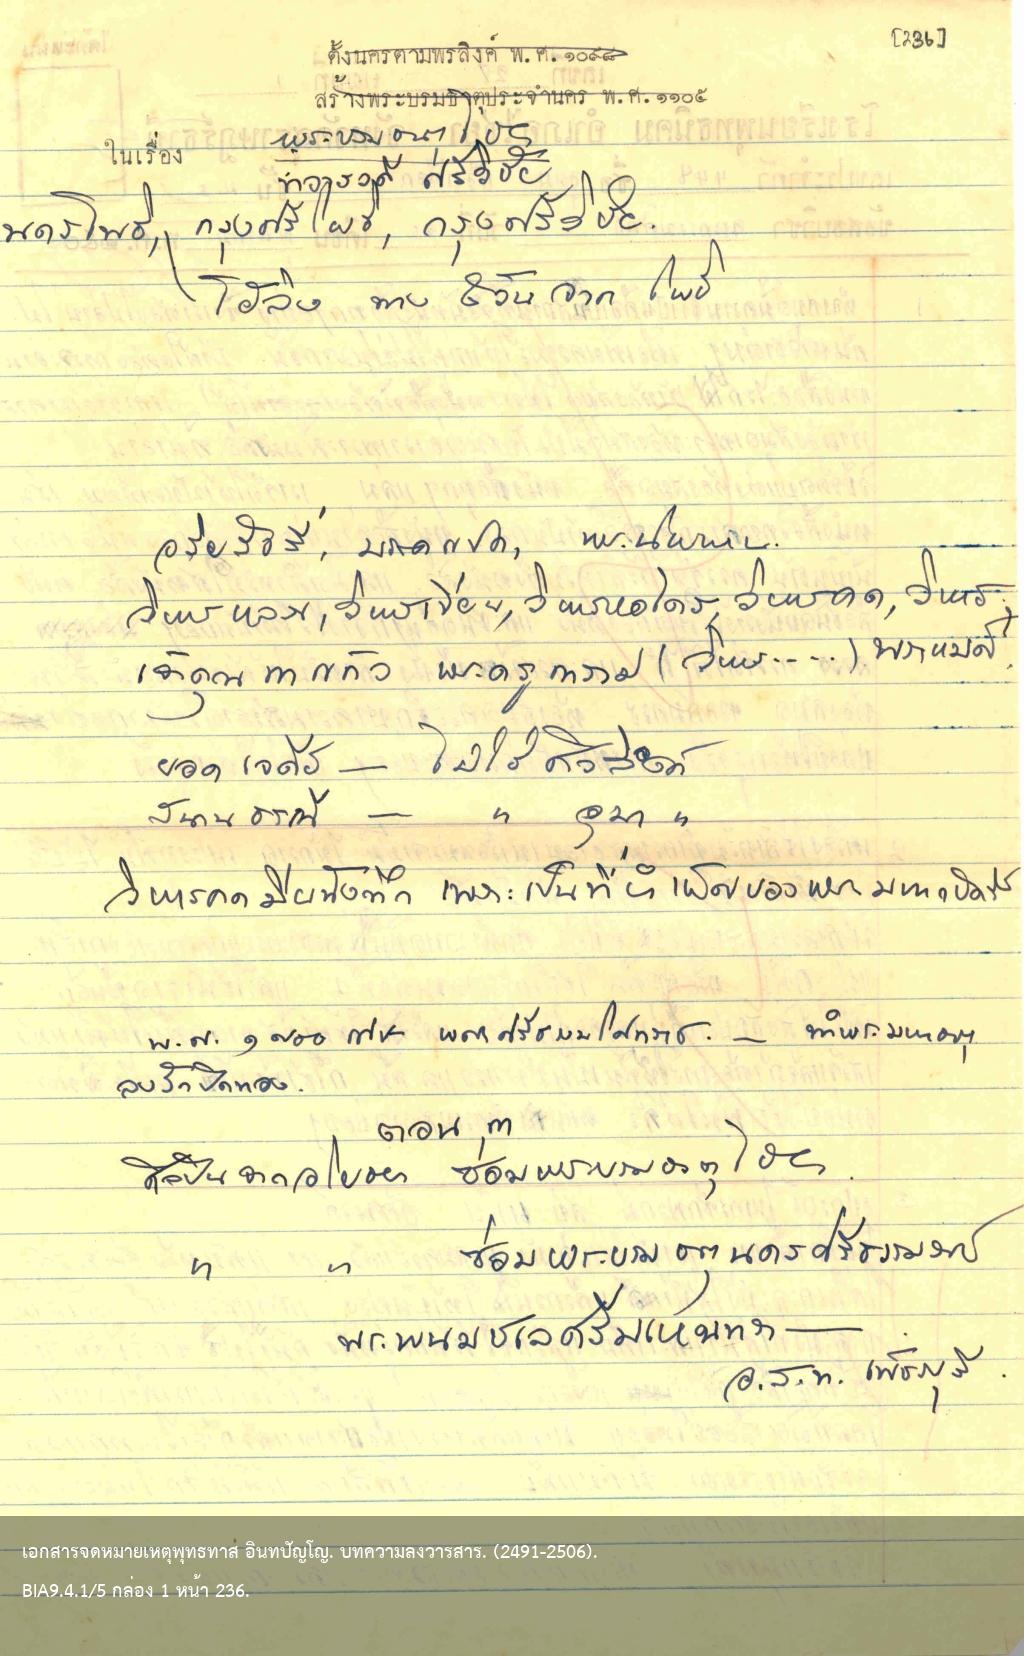 [236]
ตั้งนครตามพรลิงค์ พ.ศ. ๑๐๙๘
สร้างพระบรมธาตุประจำนคร พ.ศ. ๑๑๐๕
ในเรื่อง พระบรมธาตุไชยา
ทวารวดี ศรีวิชัย
นครโพธิ์, กรุงศรีโพธิ์, กรุงศรีวิชัย.
โฮลิง ทาง ๕ วัน จาก โพธิ์
อริยสัจสี่, มรรคแปด, พระนิพพาน.
วิหารหลวง, วิหารเขียน, วิหารหอไตร, วิหารคด, วิหาร
เจ้าคุณ พระครู (วิหาร.....) พราหมณ์
ยอดเจดีย์ — ไม่ใช่ศิวลึงค์
ฐานธรณี — " อุมา "
วิหารคด เพราะเป็นที่บำเพ็ญของพระมหากษัตริย์
พ.ศ. ศรีธรรมโศกราช. — ทำพระมหาธาตุ
ลงรักปิดทอง.
ตอน ๓
ศิลปินจากอโยธยา ซ่อมพระบรมธาตุไชยา.
" " ซ่อมพระบรมธาตุนครศรีธรรมราช
พระพนมชเลศรีมเหนทร —
อ.ส.ท. เพ็ชรบุรี.
เอกสารจดหมายเหตุพุทธทาส อินทปัญโญ. บทความลงวารสาร. (2491-2506).
BIA9.4.1/5 กล่อง 1 หน้า 236.